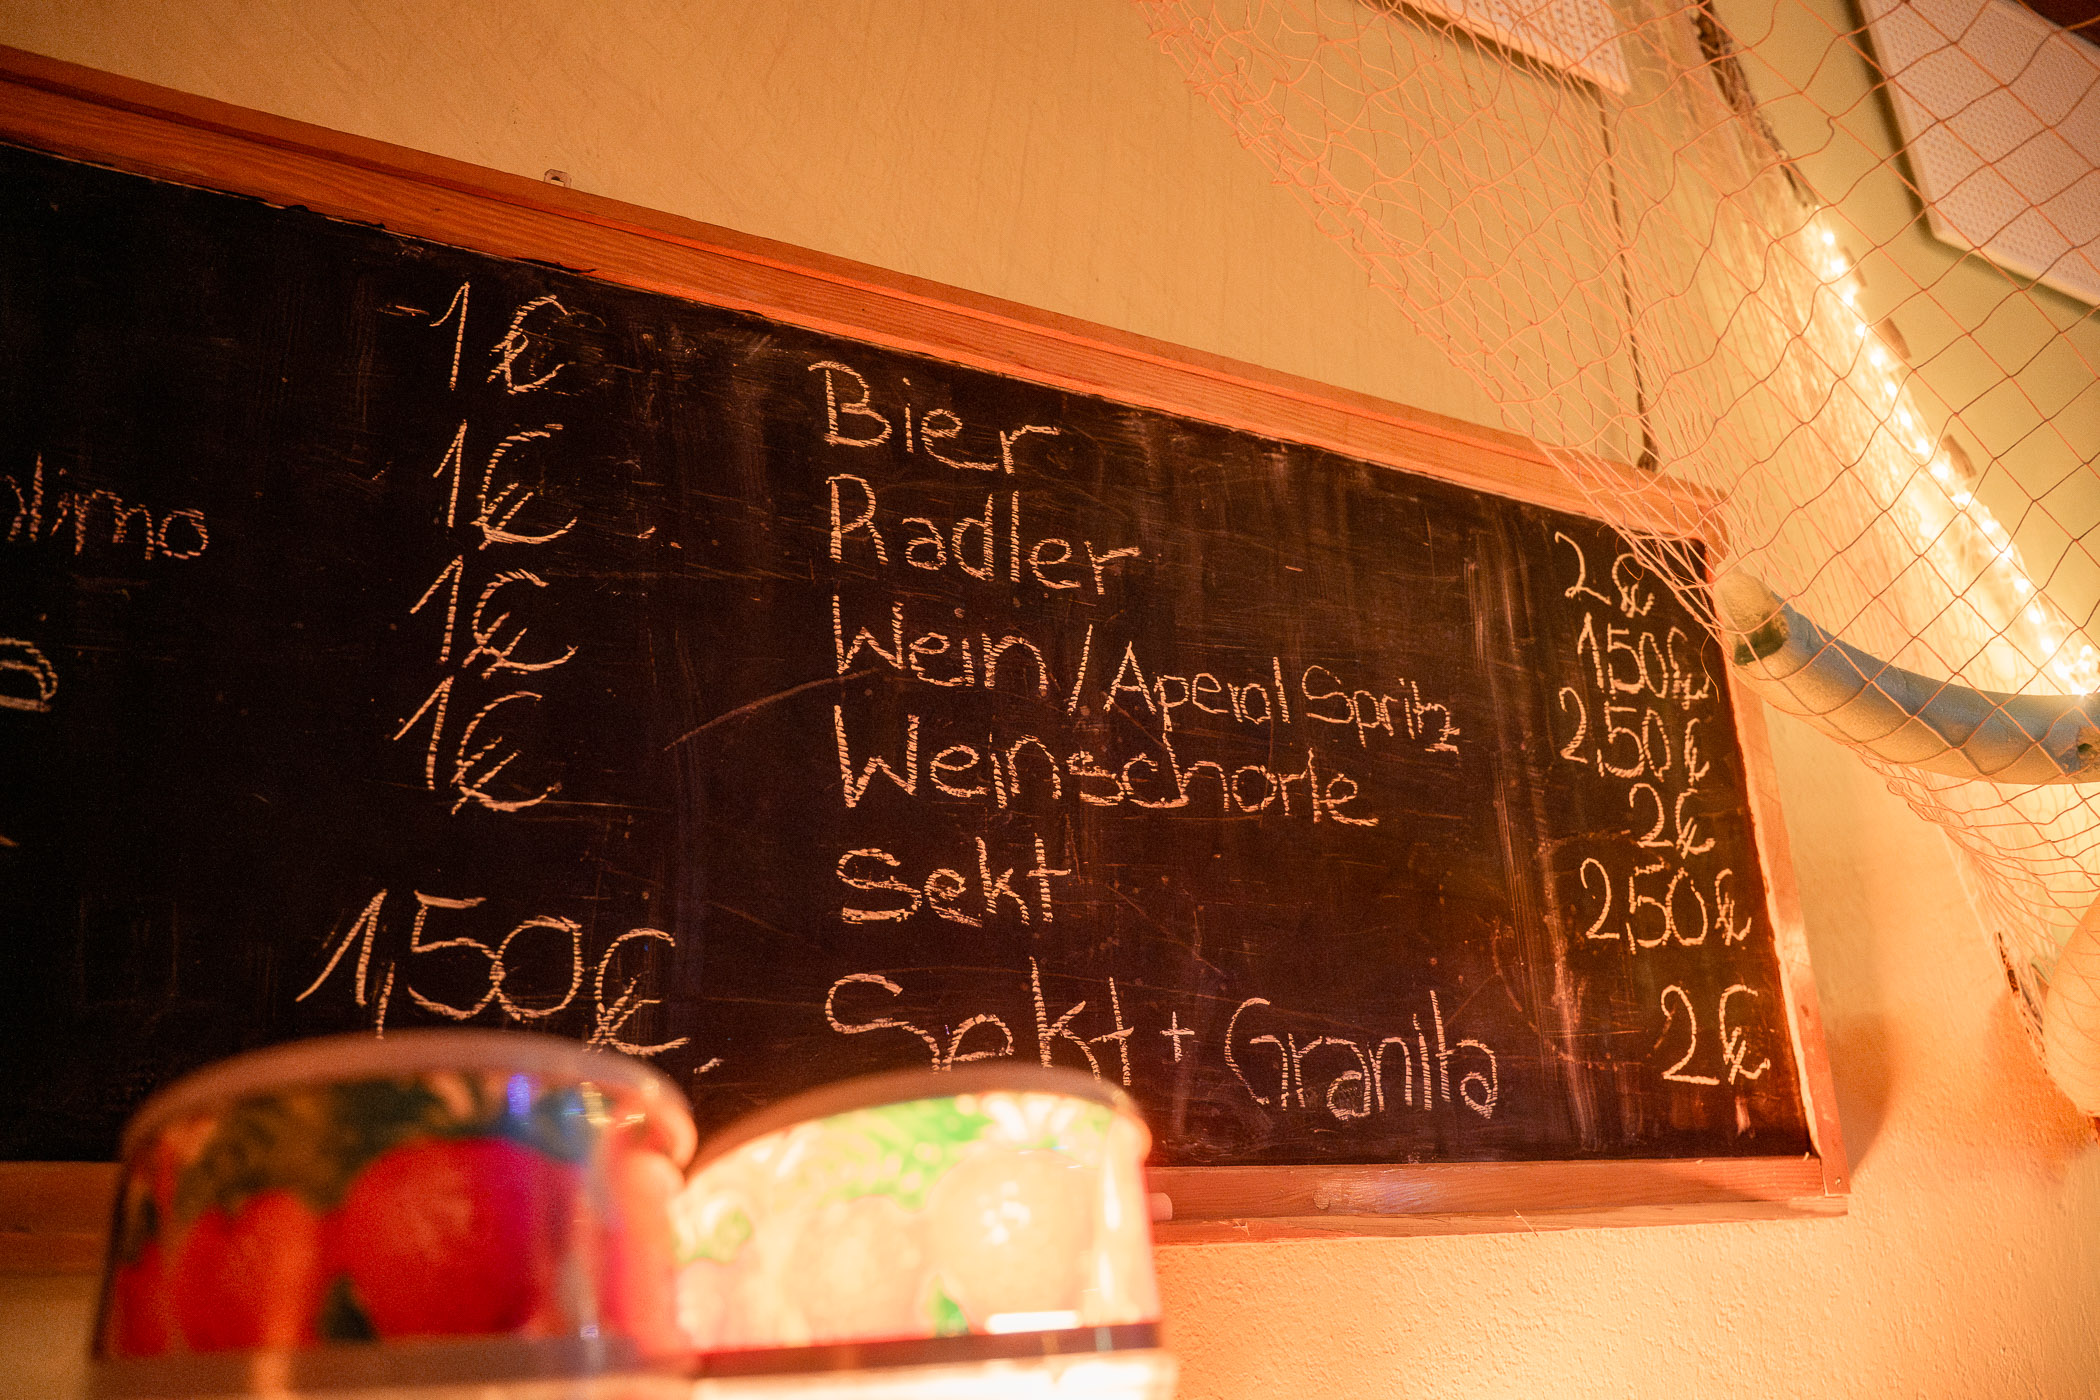 1€
limo 1€
1€
1€
1,50€
Bier 2€
Radler 1,50€
Wein/Aperol Spritz 2,50€
Weinschorle 2€
Sekt 2,50€
Sekt + Granita 2€